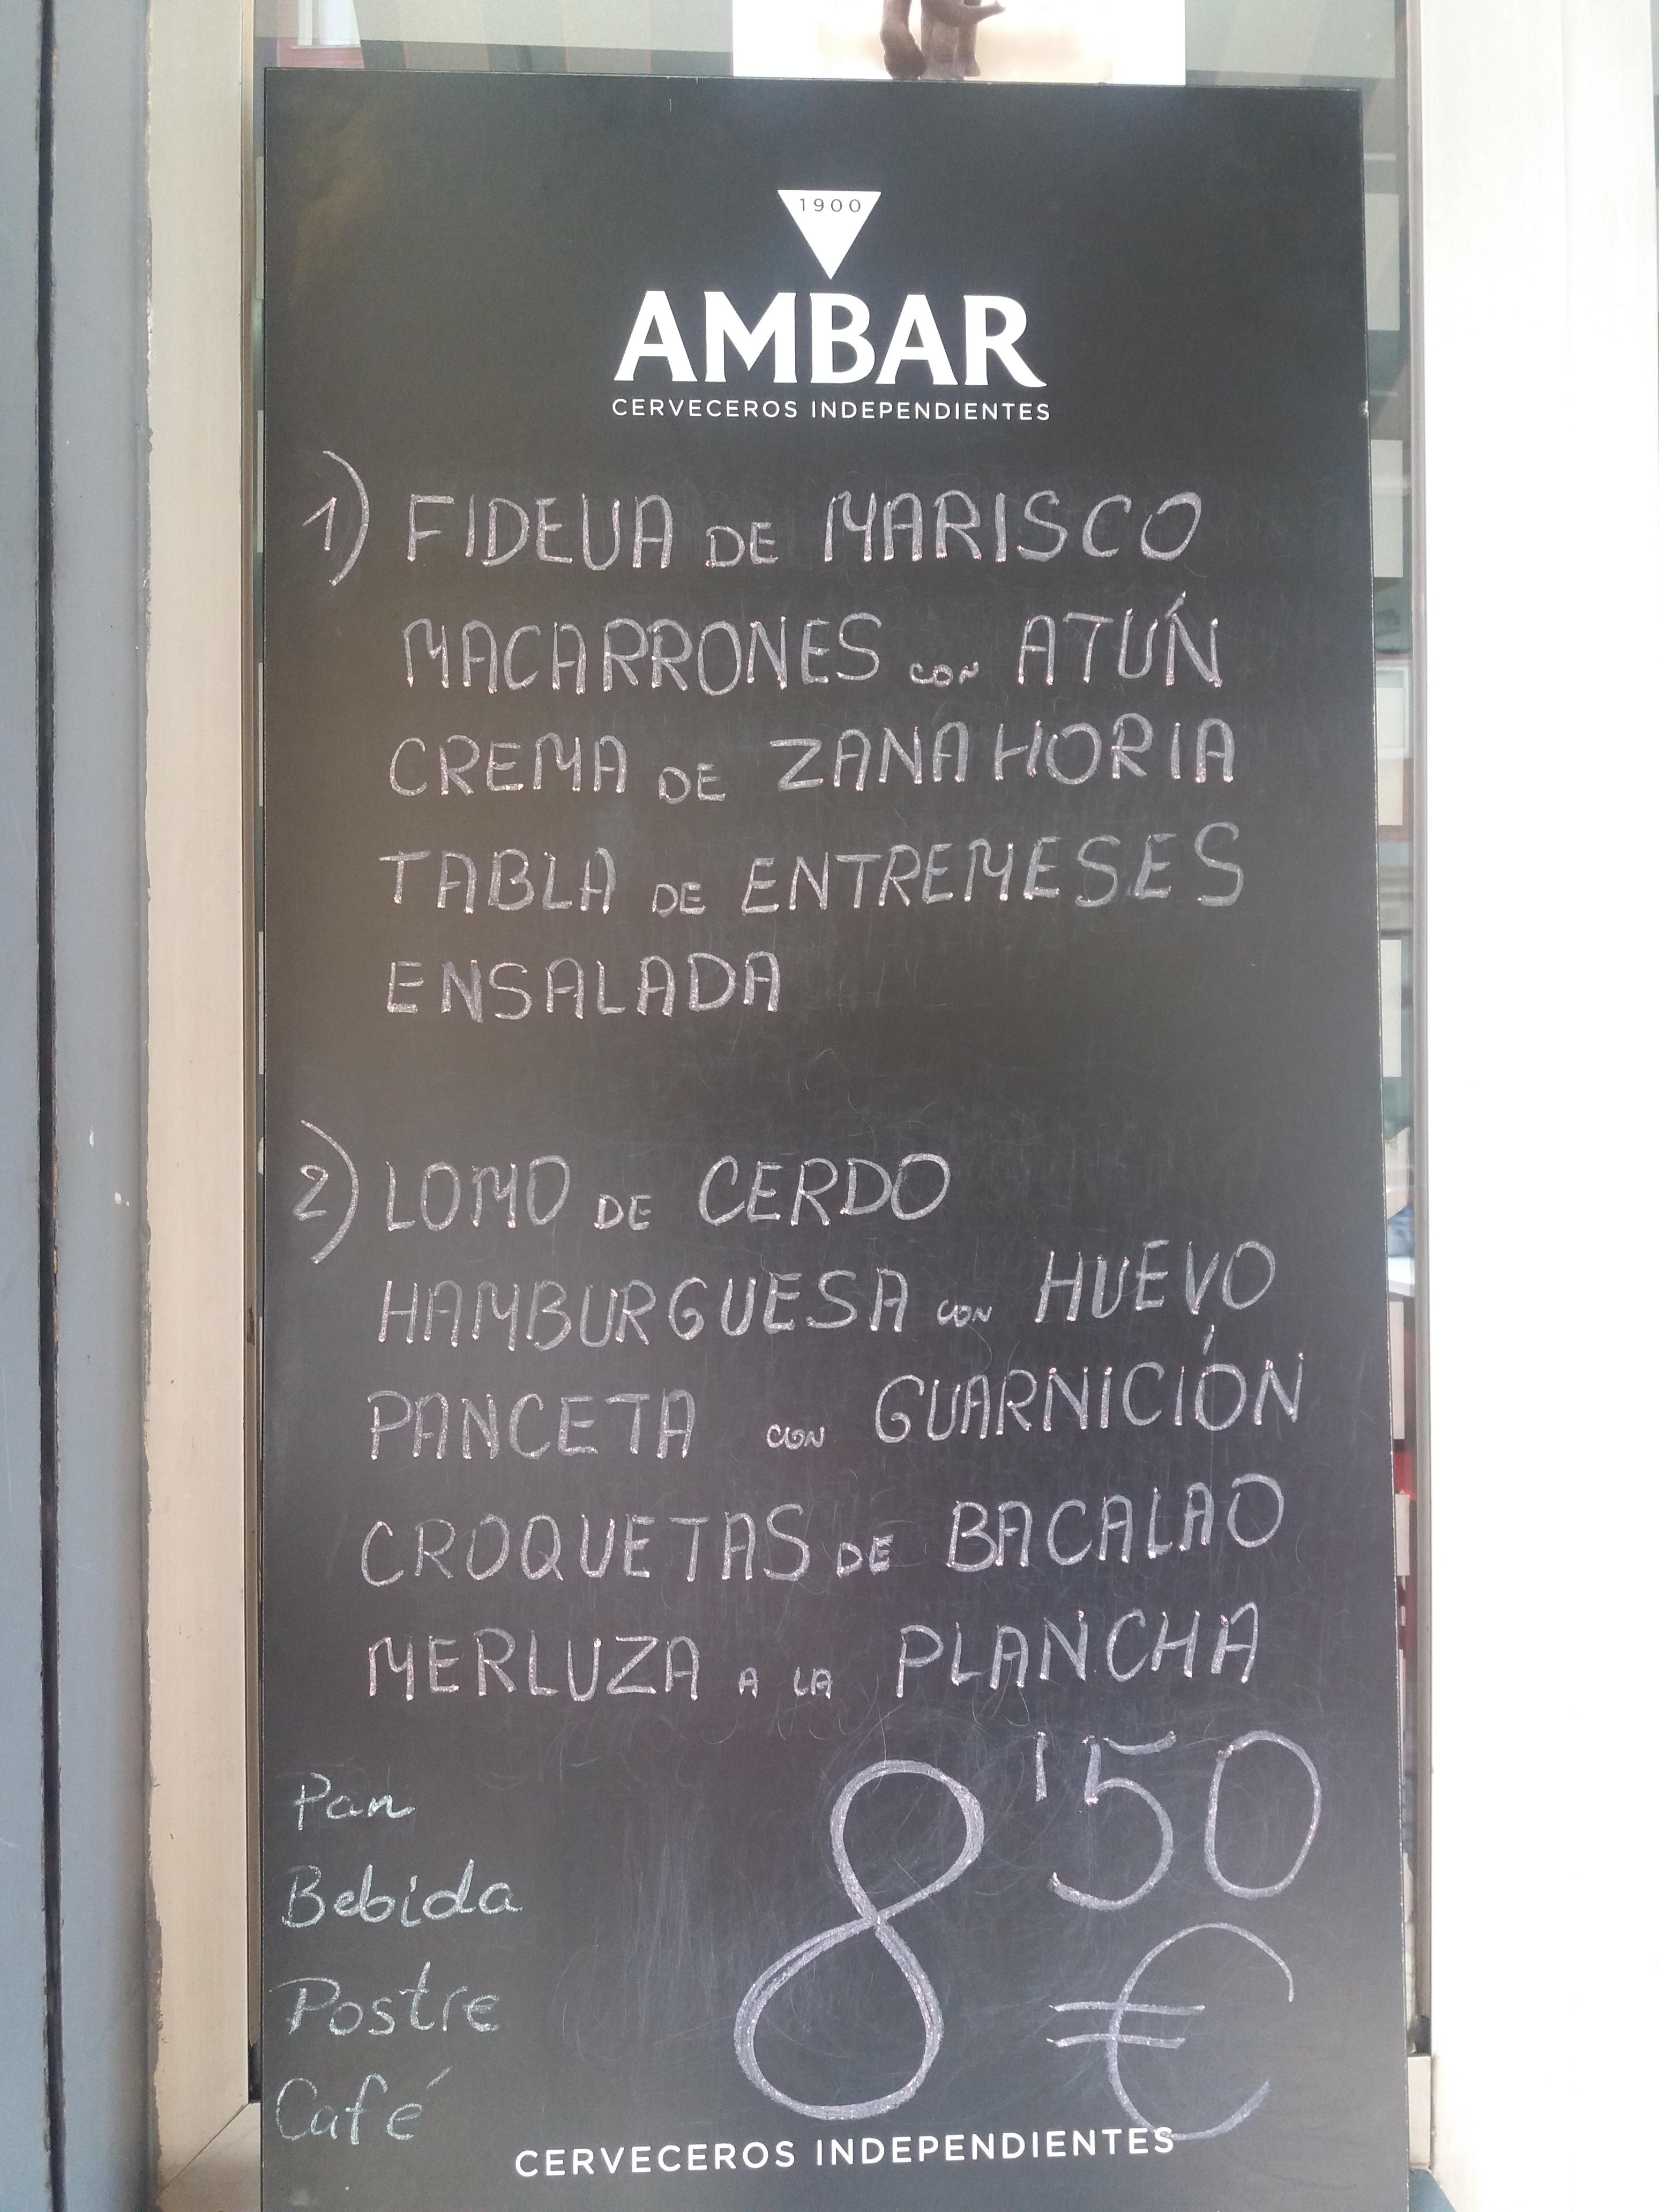 1900
AMBAR
CERVECEROS INDEPENDIENTES
1) FIDEUA DE MARISCO
MACARRONES con ATÚN
CREMA DE ZANAHORIA
TABLA DE ENTREMESES
ENSALADA
2) LOMO DE CERDO
HAMBURGUESA con HUEVO
PANCETA con GUARNICIÓN
CROQUETAS DE BACALAO
MERLUZA A LA PLANCHA
8'50
€
Pan
Bebida
Postre
Café
CERVECEROS INDEPENDIENTES